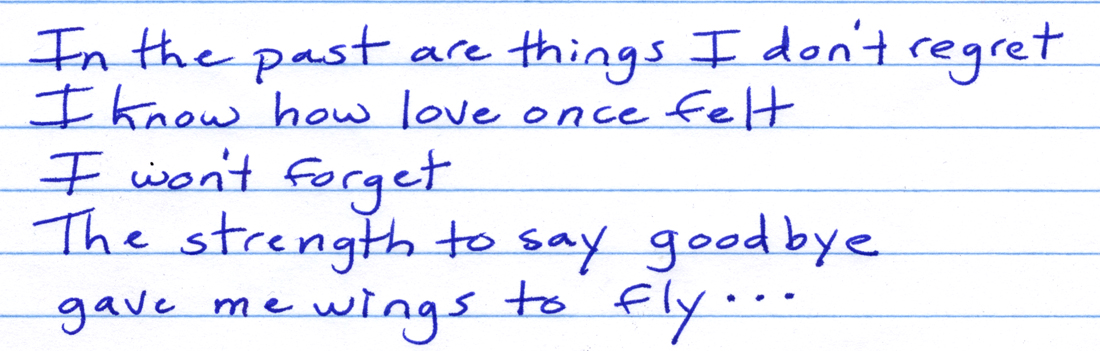 In the past are things I don't regret
I know how love once felt
I won't forget
The strength to say goodbye
gave me wings to fly...